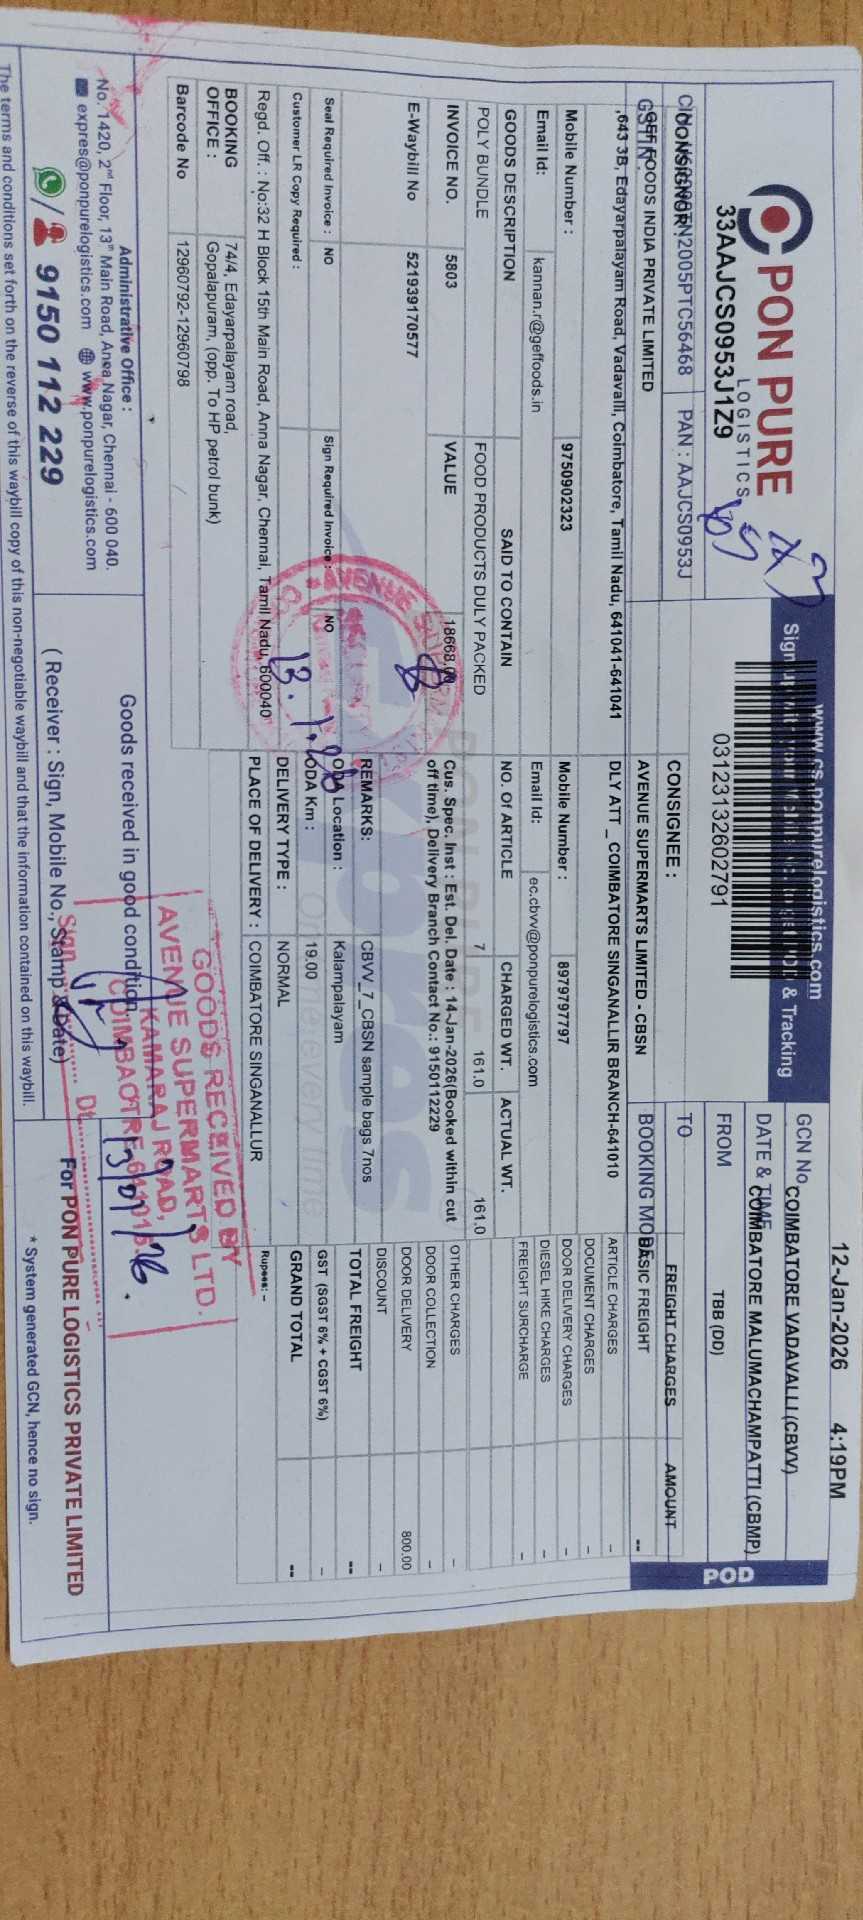 PON PURE
LOGISTICS
33AAJCS0953J1Z9
www.cs.ponpurelogistics.com
& Tracking
03123132602791
12-Jan-2026 4:19PM
GCN No
COIMBATORE VADAVALLI (CBVV)
DATE & TIME
COIMBATORE MALUMACHAMPATTI (CBMP)
FROM
TBB (DD)
TO
POD
PAN : AAJCS0953J
CONSIGNOR :
GSTIN :
GEF FOODS INDIA PRIVATE LIMITED
,643 3B, Edayarpalayam Road, Vadavalli, Coimbatore, Tamil Nadu, 641041-641041
Mobile Number : 9750902323
Email Id: kannan.r@geffoods.in
CONSIGNEE :
AVENUE SUPERMARTS LIMITED - CBSN
DLY ATT _ COIMBATORE SINGANALLIR BRANCH-641010
Mobile Number : 8979797797
Email Id: ec.cbvv@ponpurelogistics.com
BOOKING MODE
FREIGHT CHARGES AMOUNT
BASIC FREIGHT --
ARTICLE CHARGES -
DOCUMENT CHARGES -
DOOR DELIVERY CHARGES -
DIESEL HIKE CHARGES -
FREIGHT SURCHARGE -
OTHER CHARGES -
DOOR COLLECTION -
DOOR DELIVERY 800.00
DISCOUNT -
TOTAL FREIGHT --
GST (SGST 6% + CGST 6%) -
GRAND TOTAL --
Rupees: -
GOODS DESCRIPTION SAID TO CONTAIN NO. Of ARTICLE CHARGED WT. ACTUAL WT.
POLY BUNDLE FOOD PRODUCTS DULY PACKED 7 161.0 161.0
INVOICE NO. 5803 VALUE
Cus. Spec. Inst : Est. Del. Date : 14-Jan-2026(Booked within cut
off time), Delivery Branch Contact No.: 9150112229
E-Waybill No 521939170577
REMARKS: CBVV_7_CBSN sample bags 7nos
Seal Required Invoice : NO Sign Required Invoice : NO
ODA Location : Kalampalayam
Customer LR Copy Required :
ODA Km : 19.00
Regd. Off. : No:32 H Block 15th Main Road, Anna Nagar, Chennai, Tamil Nadu, 600040
DELIVERY TYPE : NORMAL
BOOKING OFFICE : 74/4, Edayarpalayam road,
Gopalapuram, (opp. To HP petrol bunk)
PLACE OF DELIVERY : COIMBATORE SINGANALLUR
Barcode No 12960792-12960798
GOODS RECEIVED BY
AVENUE SUPERMARTS LTD.
KAMARAJ ROAD,
Sign
Dt
13/01/26.
Administrative Office :
No. 1420, 2nd Floor, 13th Main Road, Anna Nagar, Chennai - 600 040.
expres@ponpurelogistics.com www.ponpurelogistics.com
9150 112 229
Goods received in good condition
( Receiver : Sign, Mobile No., Stamp & Date)
For PON PURE LOGISTICS PRIVATE LIMITED
The terms and conditions set forth on the reverse of this waybill copy of this non-negotiable waybill and that the information contained on this waybill.
* System generated GCN, hence no sign.